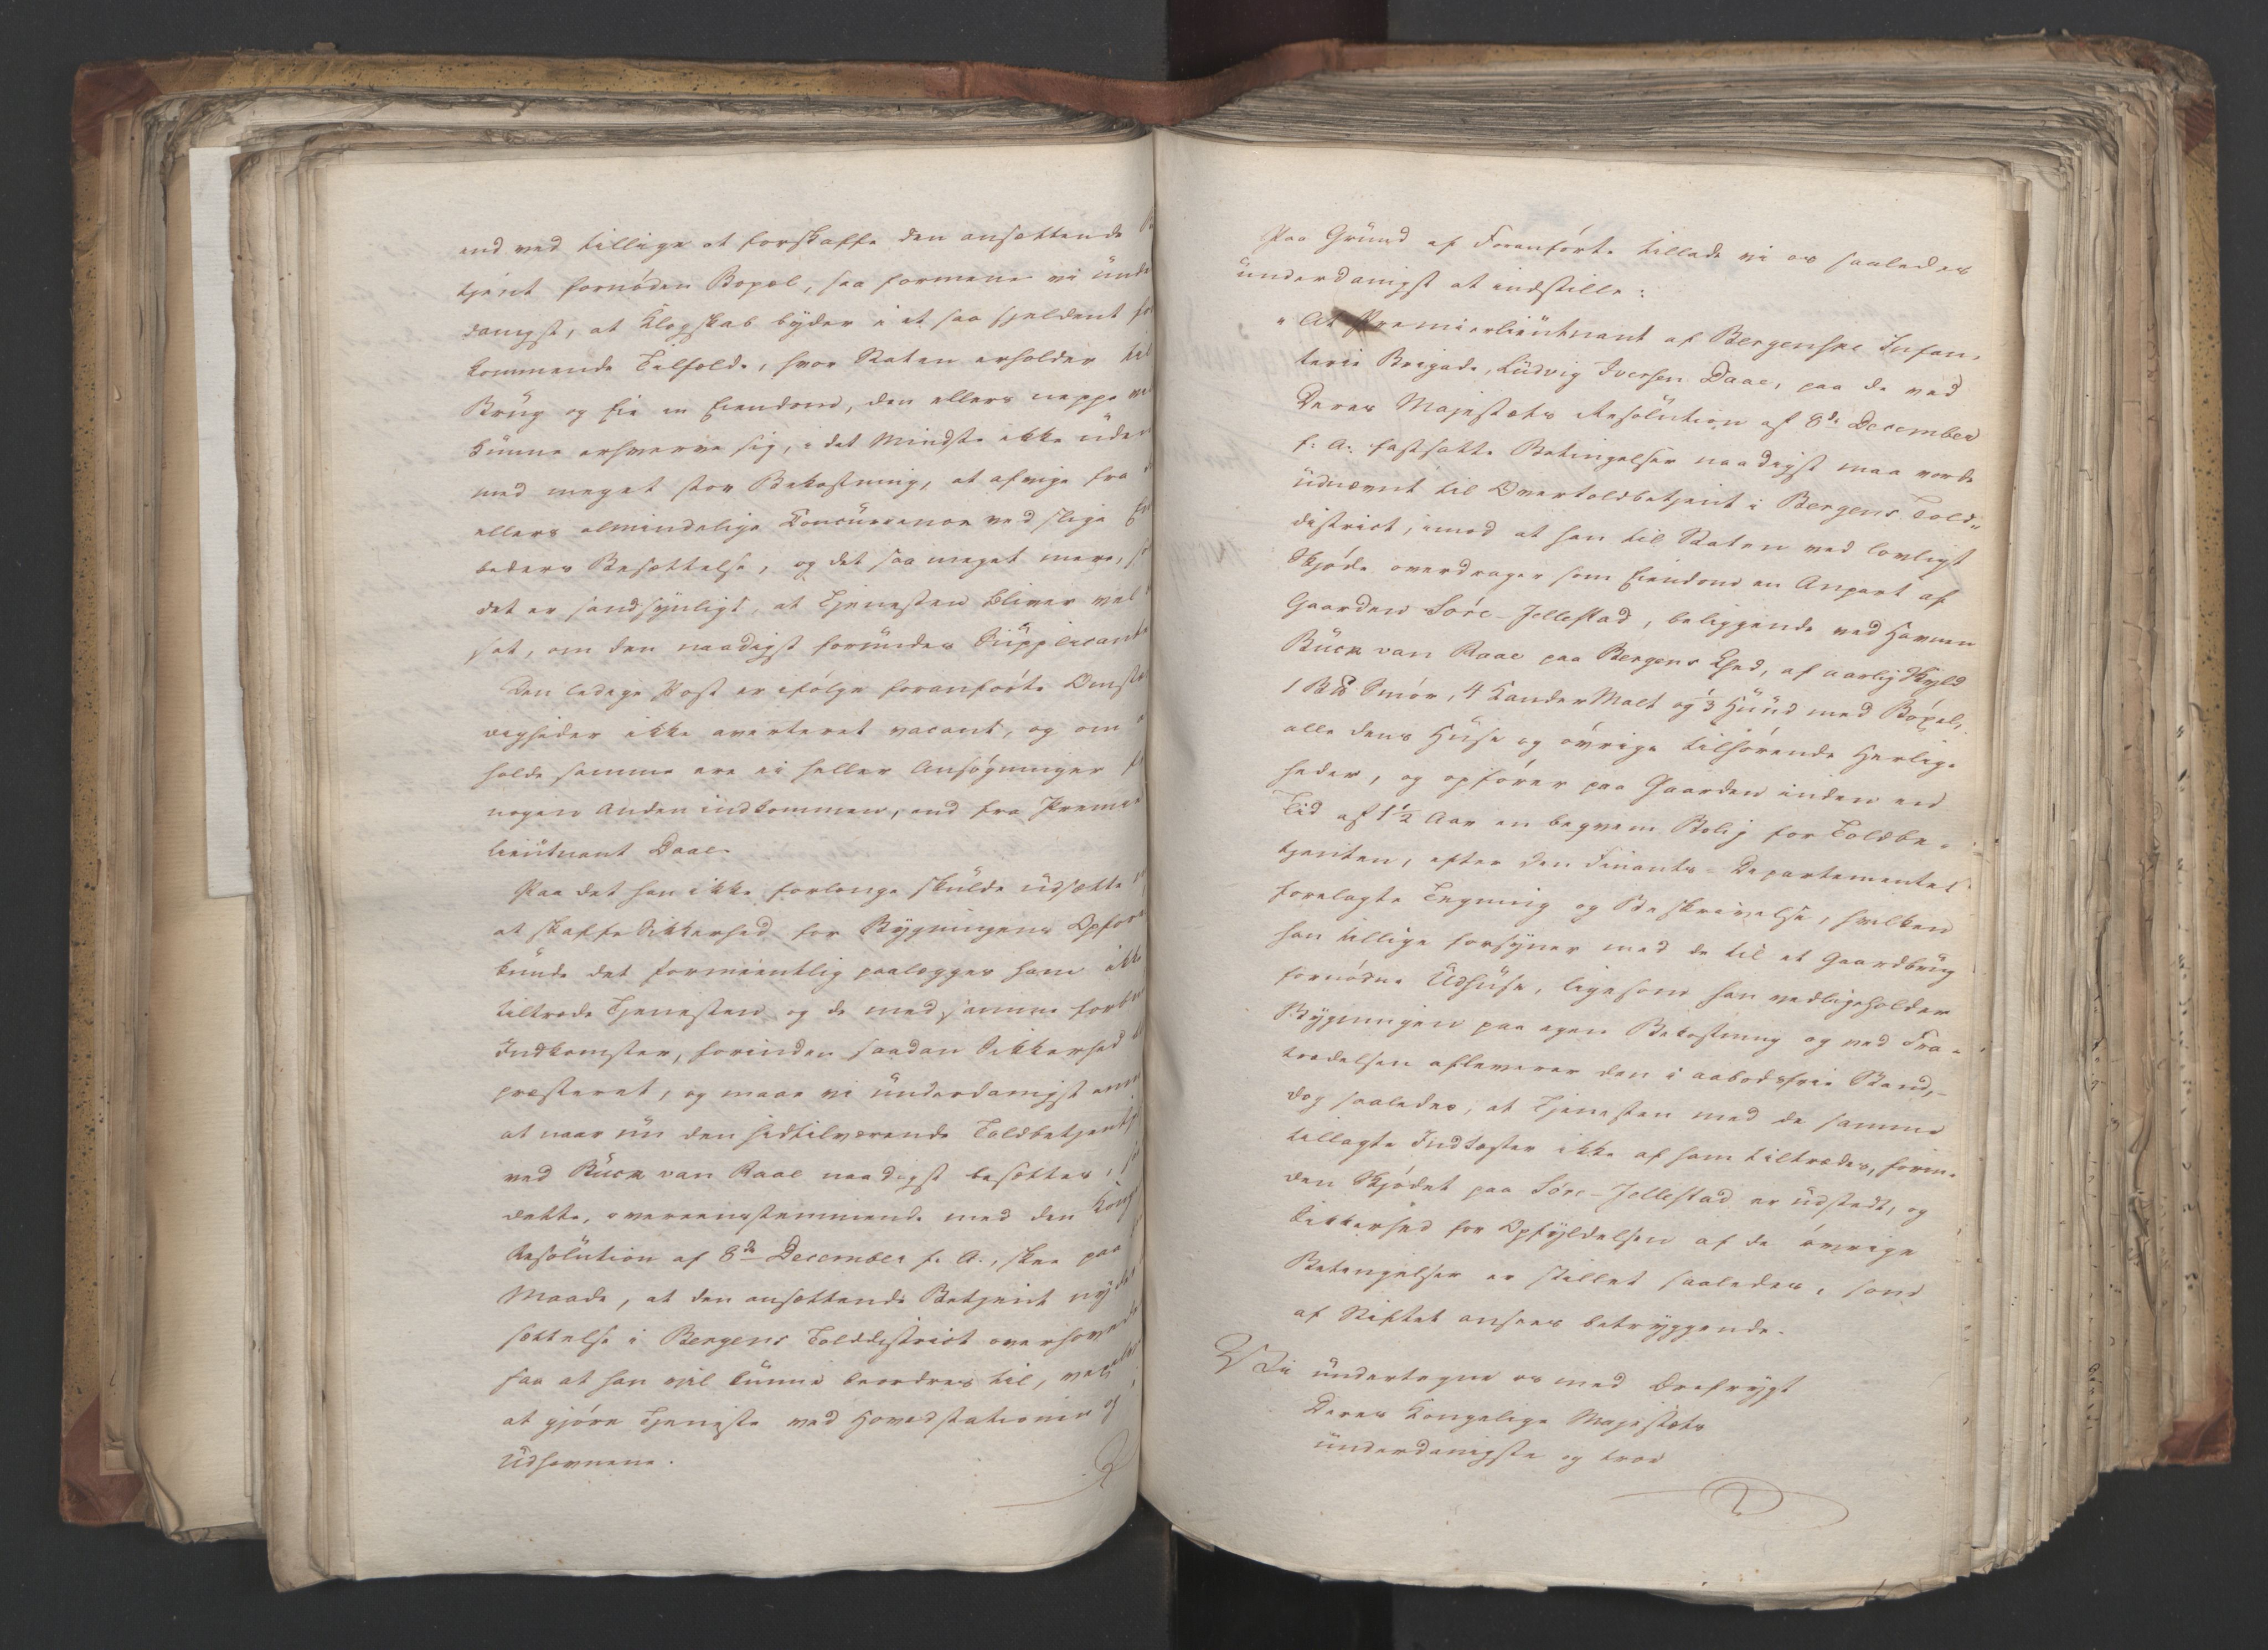 end ved tillige at forskaffe den ansættende
tjent fornöden Bopæl, saa formene vi
danigst, at Klogskab byder i et saa sjeldent
kommende Tilfælde, hvor Staten erholder til
Brug og Eie en Eiendom, den ellers neppe
kunne erhverve sig, i det Mindste ikke uden
med meget stor Bekostning, at afvige fra
ellers almindelige Concurrence ved slige
beders Besættelse, og det saa meget mere,
det er sandsynligt, at Tjenesten bliver vel
sat, om den naadigst forundes Supplicant
Den ledige Post er ifölge foranförte
digheder ikke averteret vacant, og om
holde samme ere ei heller Ansögninger
nogen Anden indkommen, end fra
lieutnant Daae.
Paa det han ikke forlænge skulde udsætte
at skaffe Sikkerhed for Bygningens
kunde det formeentlig paalægges ham ikke
tiltræde Tjenesten og de med samme
Indkomster, forinden saadan Sikkerhed
præsteret, og maae vi underdanigst
at naar nu den hidtilværende
ved Buck van Raae naadigst besættes,
dette, overeensstemmende med den
Resolution af 8de December f. A., skee paa
Maade, at den ansættende Betjent
sættelse i Bergens Tolddistrict
saa at han vil kunne beordres til,
at gjöre Tjeneste ved Hovedstationen og
Udhavnene.
Paa Grund af Foranförte tillade vi os saaledes
underdanigst at indstille:
"At Premierlieutnant af Bergenske Infan-
terie Brigade, Ludvig Iversen Daae, paa de ved
Deres Majestæts Resolution af 8de December
f. A. fastsatte Betingelser naadigst maa vorde
udnævnt til Overtoldbetjent i Bergens Told-
district, imod at han til Staten ved lovligt
Skjöde overdrager som Eiendom en Anpart af
Gaarden Söre-Jellestad, beliggende ved Havnen
Buck van Raae paa Bergens Leed, af aarlig Skyld
1 B℔ Smör, 4 Kander Malt og 3 Huud med Böxel,
alle dens Huse og övrige tilhörende Herlig-
heder, og opförer paa Gaarden inden en
Tid af 1½ Aar en beqvem Bolig for Toldbe-
tjenten, efter den Finants-Departementet
forelagte Tegning og Beskrivelse, hvilken
han tillige forsyner med de til et Gaardbrug
fornödne Udhuse, ligesom han vedligeholder
Bygningen paa egen Bekostning og ved Fra-
trædelsen afleverer den i aabodsfrie Stand,-
dog saaledes, at Tjenesten med de samme
tillagte Indtægter ikke af ham tiltrædes, forin-
den Skjödet paa Söre-Jellestad er udstedt, og
Sikkerhed for Opfyldelsen af de övrige
Betingelser er stillet saaledes, som
af Stiftet ansees betryggende.
Vi undertegne os med Ærefrygt
Deres Kongelige Majestæts
underdanigste og troe